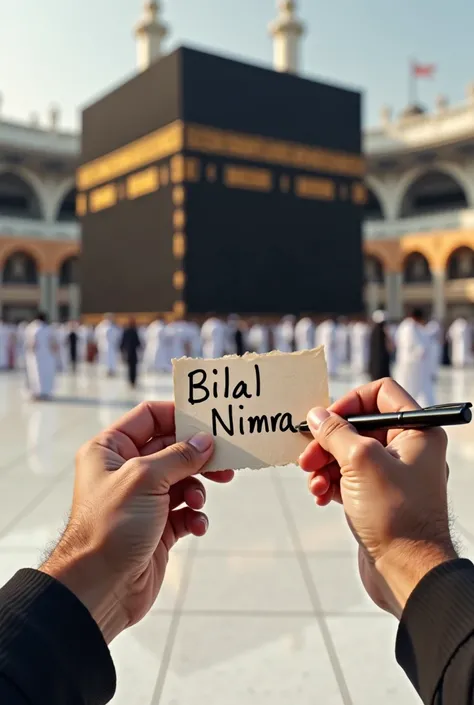 Bilal
Nimra